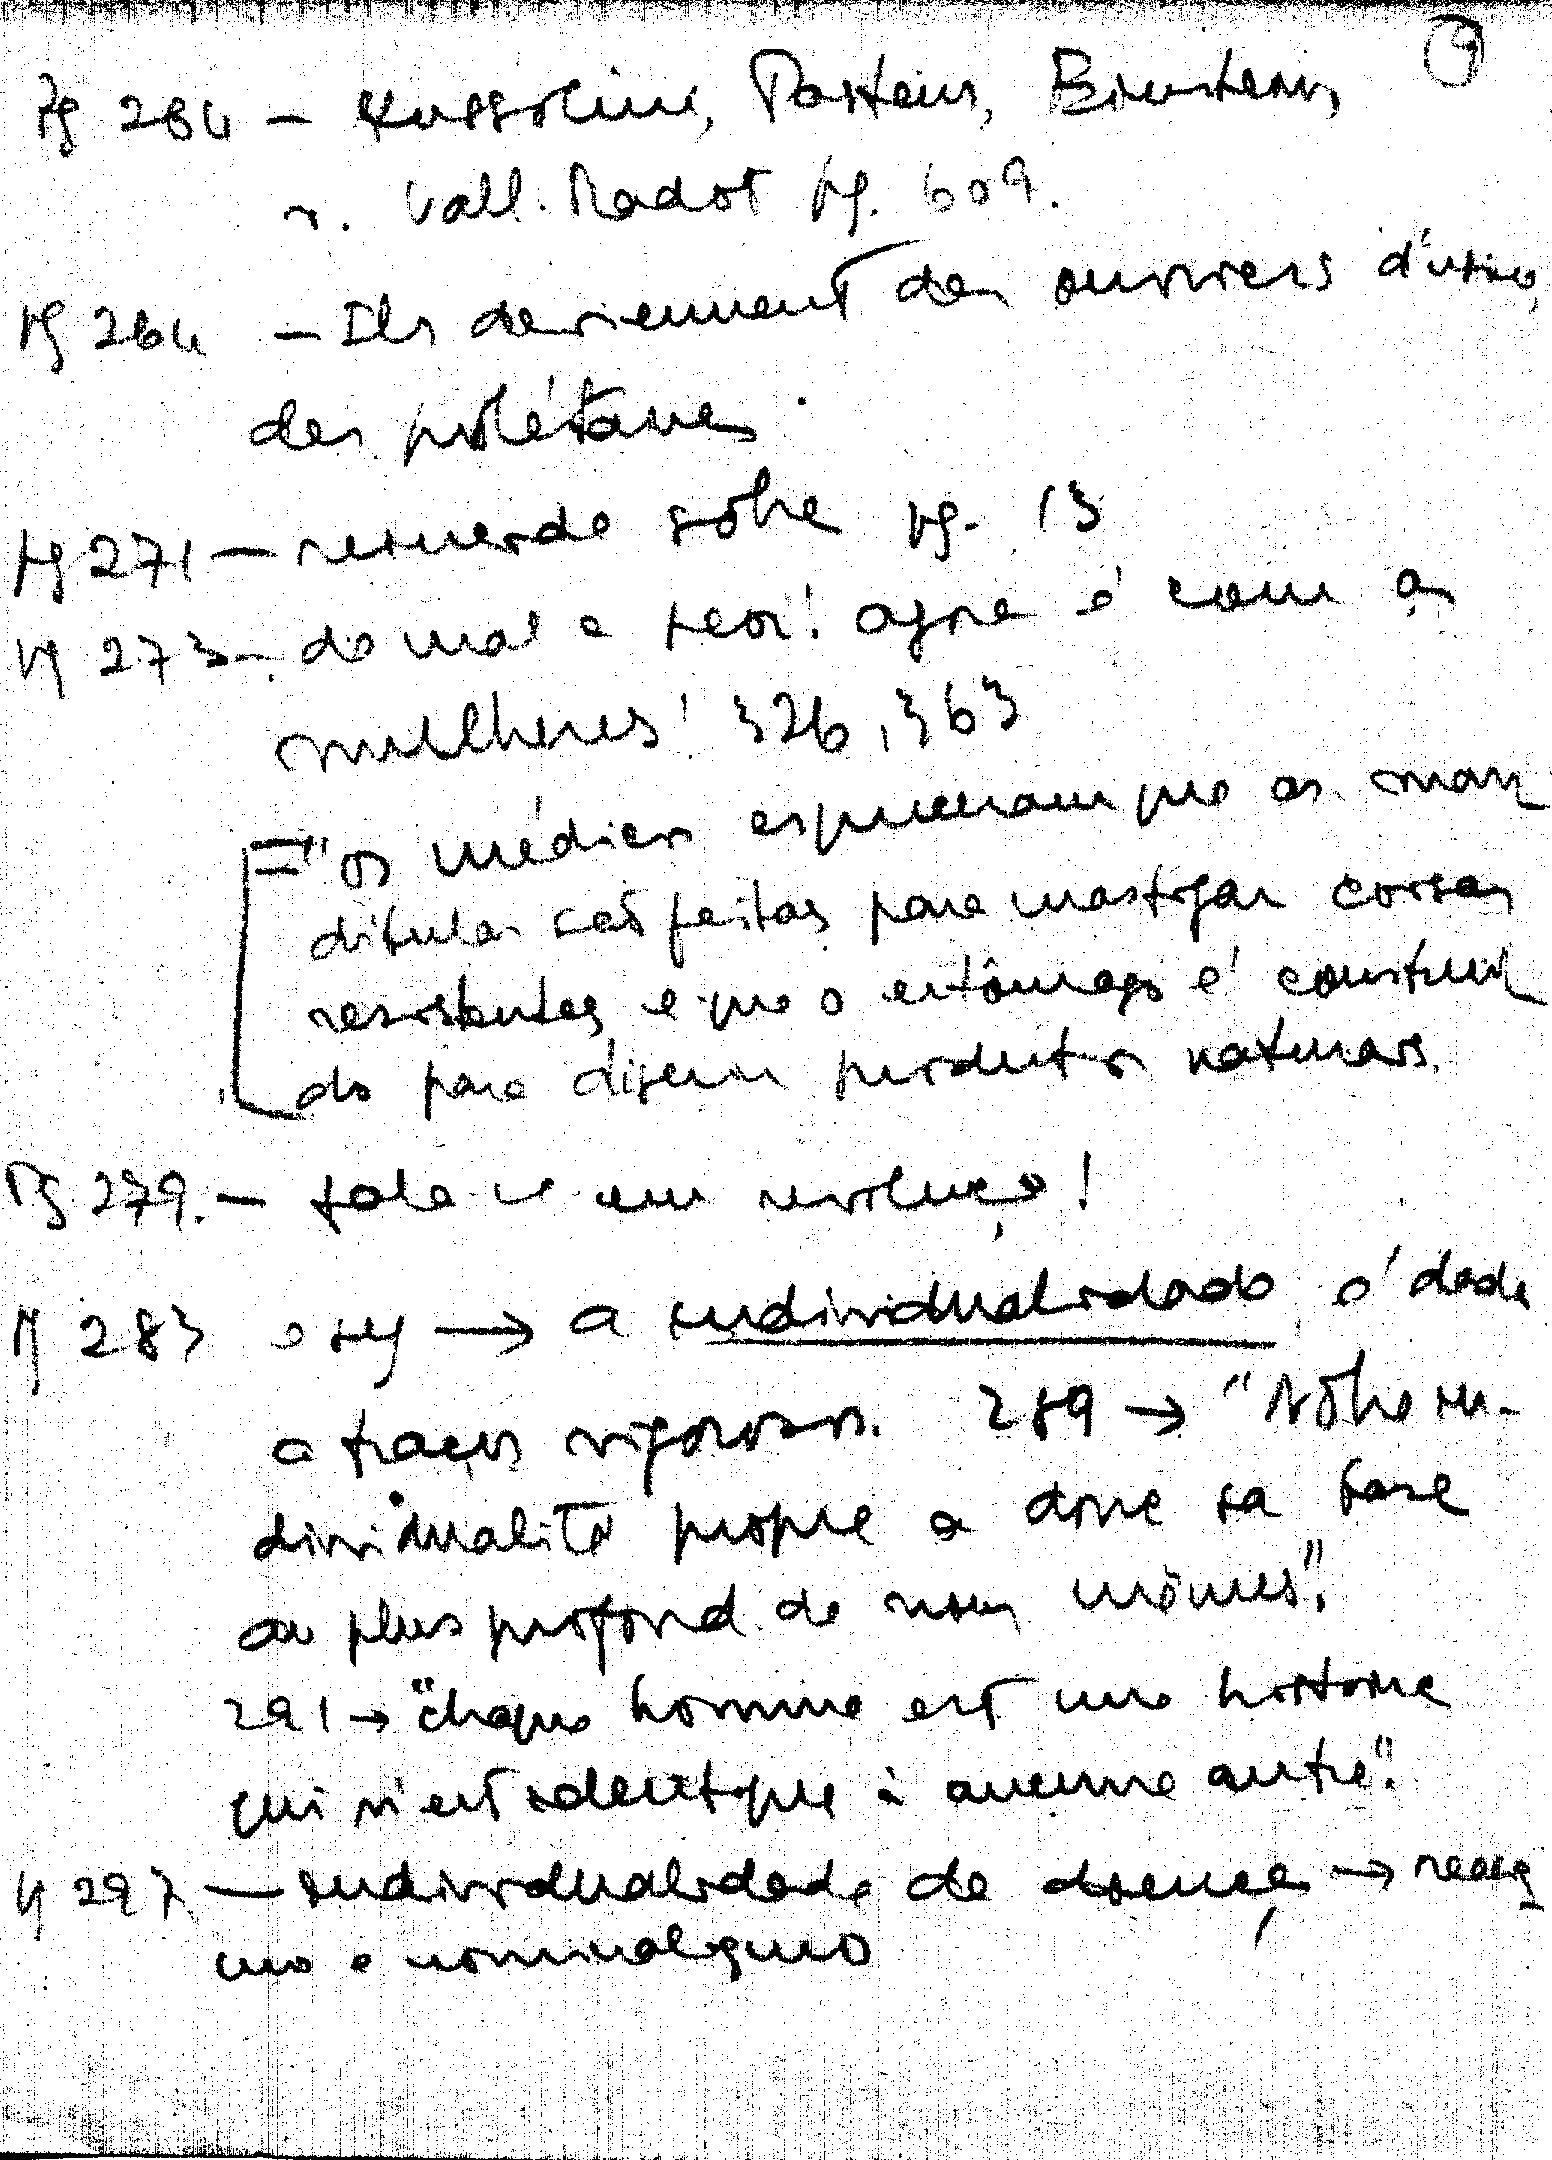 9
Pg 264 — Mussolini, Pasteur, Einstein,
v. Vall. Radot pg. 609.
Pg 264 — Ils deviennent des ouvriers d'usine,
des prolétaires.
pg 271 — sobre pg. 13
pg 273 — do mal a peor! agora é com as
mulheres! 326, 363
— "os médicos esqueceram que as man
díbulas são feitas para mastigar coisas
resistentes e que o estômago é construi
do para digerir produtos naturais.
Pg 279. — fala-se em revolução!
pg 283 e seg → a individualidade é dada
a traços vigorosos. 289 → "Nôtre in-
dividualité propre a donc sa base
au plus profond de nous mêmes".
291 → "chaque homme est une histoire
qui n'est identique à aucune autre".
pg 297 — individualidade da doença → realis
mo e nominalismo